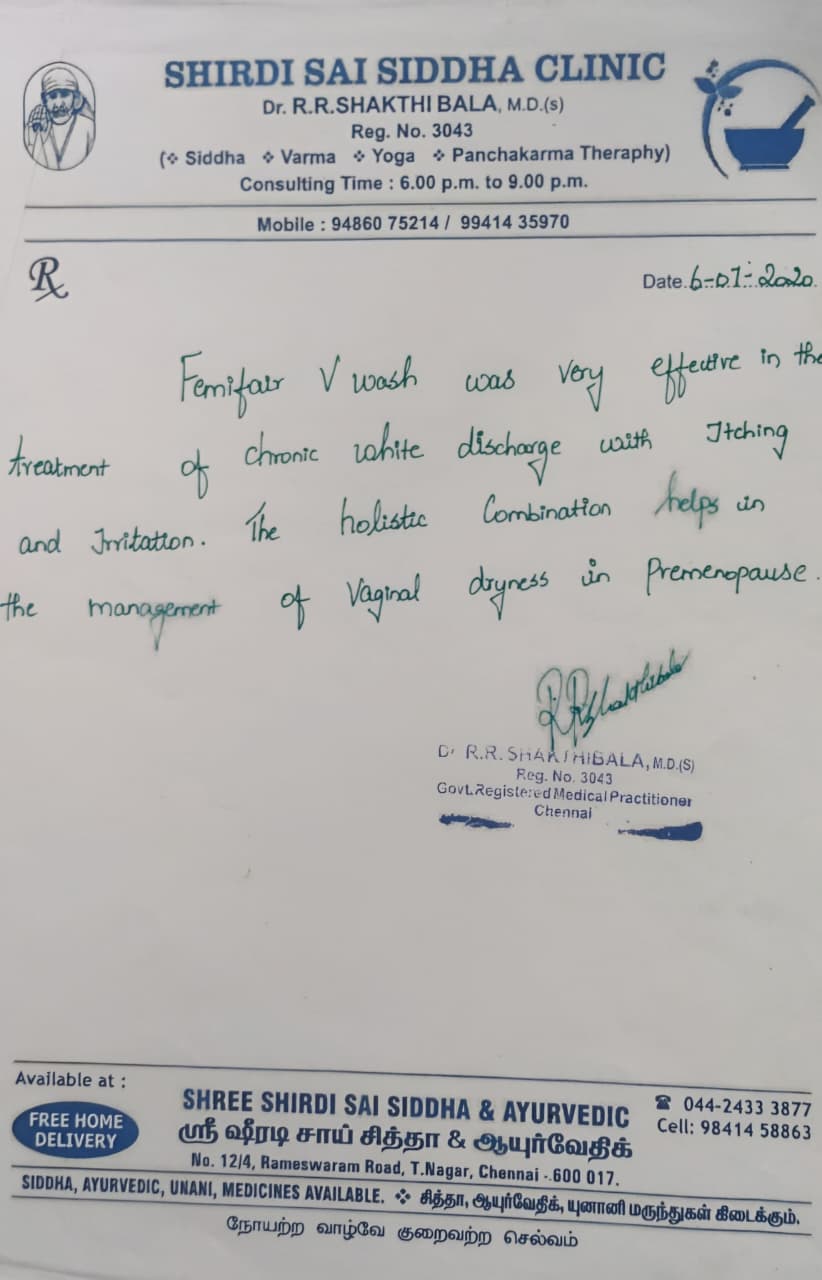 SHIRDI SAI SIDDHA CLINIC
Dr. R.R.SHAKTHI BALA, M.D.(s)
Reg. No. 3043
(❖ Siddha ❖ Varma ❖ Yoga ❖ Panchakarma Theraphy)
Consulting Time : 6.00 p.m. to 9.00 p.m.
Mobile : 94860 75214 / 99414 35970
Rx
Date. 6-01-2020.
Femifair V wash was very effective in the
treatment of chronic white discharge with Itching
and Irritation. The holistic Combination helps in
the management of Vaginal dryness in Premenopause.
R.R.Shakthibala
Dr R.R. SHAKTHIBALA, M.D.(S)
Reg. No. 3043
Govt.Registered Medical Practitioner
Chennai
Available at :
FREE HOME
DELIVERY
SHREE SHIRDI SAI SIDDHA & AYURVEDIC
ஸ்ரீ ஷீரடி சாய் சித்தா & ஆயுர்வேதிக்
No. 12/4, Rameswaram Road, T.Nagar, Chennai - 600 017.
☎ 044-2433 3877
Cell: 98414 58863
SIDDHA, AYURVEDIC, UNANI, MEDICINES AVAILABLE. ❖ சித்தா, ஆயுர்வேதிக், யுனானி மருந்துகள் கிடைக்கும்.
நோயற்ற வாழ்வே குறைவற்ற செல்வம்